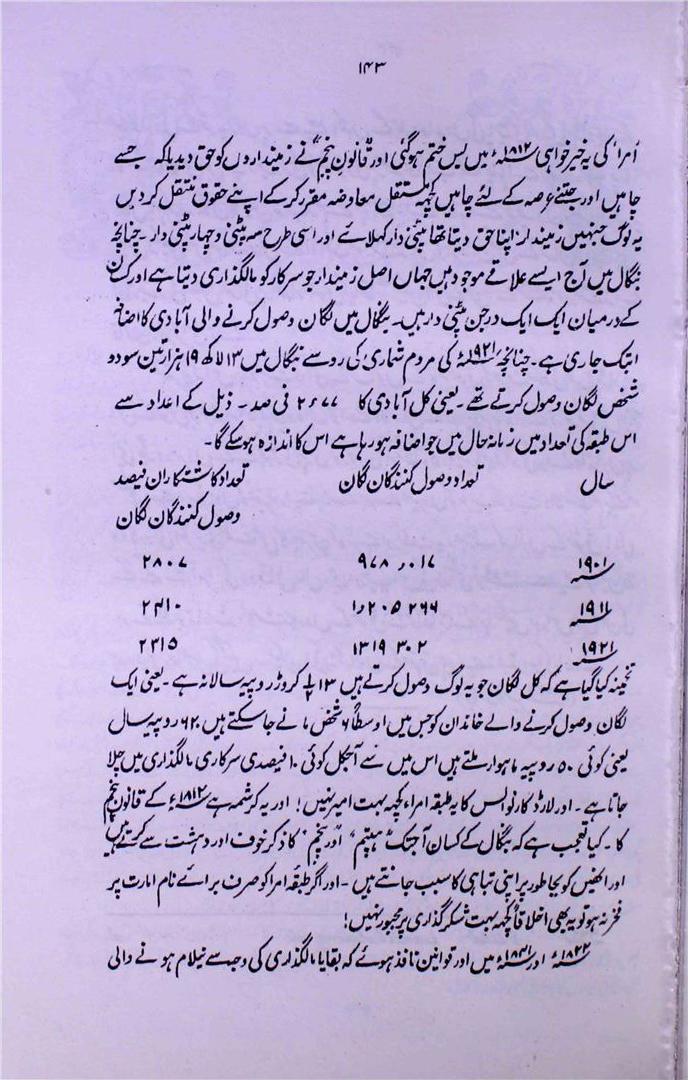 ۱۴۳
اُمرا کی یہ خیر خواہی ۱۸۱۲ء میں بس ختم ہوگئی اور "قانونِ پنجم" نے زمینداروں کو حق دیدیا کہ جسے
چاہیں اور جتنے عرصہ کے لئے چاہیں کچھ مستقل معاوضہ مقرر کرکے اپنے حقوق منتقل کردیں
یہ لوگ جنہیں زمیندار اپنا حق دیتا تھا پٹنی دار کہلائے اور اسی طرح سہ پٹنی و چہار پٹنی دار ۔ چنانچہ
بنگال میں آج ایسے علاقے موجود ہیں جہاں اصل زمیندار جو سرکار کو مالگذاری دیتا ہے اور کسان
کے درمیان ایک ایک درجن پٹنی دار ہیں۔ بنگال میں لگان وصول کرنے والی آبادی کا اضافہ
ابتک جاری ہے ۔ چنانچہ ۱۹۲۱ء کی مردم شماری کی رو سے بنگال میں ۱۳ لاکھ ۱۹ ہزار تین سو دو
شخص لگان وصول کرتے تھے ۔ یعنی کل آبادی کا ۲۶۷۷ فی صد ۔ ذیل کے اعداد سے
اس طبقہ کی تعداد میں زمانہ حال میں جو اضافہ ہو رہا ہے اس کا اندازہ ہو سکے گا۔
سال تعداد وصول کنندگان لگان تعداد کاشتکاران فیصد
وصول کنندگان لگان
۱۹۰۱ء ۰۱۷ر ۹۷۸ ۲۸۰۷
۱۹۱۱ء ۲۶۶ ۲۰۵ر۱ ۲۳۱۰
۱۹۲۱ء ۳۰۲ ۱۳۱۹ ۲۳۱۵
تخمینہ کیا گیا ہے کہ کل لگان جو یہ لوگ وصول کرتے ہیں ۱۳½ کروڑ روپیہ سالانہ ہے ۔ یعنی ایک
لگان وصول کرنے والے خاندان کو جس میں اوسطاً ۶ شخص مانے جاسکتے ہیں ۶۲۰ روپیہ سال
یعنی کوئی ۵۰ روپیہ ماہوار ملتے ہیں اس میں سے آجکل کوئی ۱۰ فیصدی سرکاری مالگذاری میں چلا
جاتا ہے ۔ اور لارڈ کارنوالس کا یہ طبقہ امراء کچھ بہت امیر نہیں! اور یہ کرشمہ ہے ۱۸۱۲ء کے قانون پنجم
کا ۔ کیا تعجب ہے کہ بنگال کے کسان آجتک "ہپتم" اور "پنجم" کا ذکر خوف اور دہشت سے کرتے ہیں
اور انھیں کو بجا طور پر اپنی تباہی کا سبب جانتے ہیں ۔ اور اگر طبقۂ امرا کو صرف برائے نام امارت پر
فخر نہ ہو تو یہ بھی اخلاقاً کچھ بہت شکر گذاری پر مجبور نہیں!
۱۸۲۲ء اور ۱۸۴۱ء میں اور قوانین نافذ ہوئے کہ بقایا مالگذاری کی وجہ سے نیلام ہونے والی